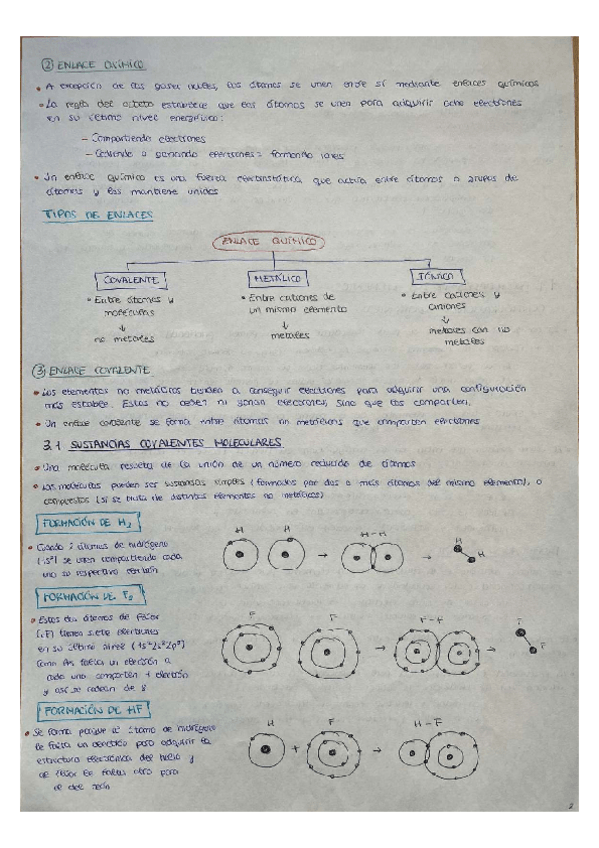 ② ENLACE QUÍMICO
• A excepción de los gases nobles, los átomos se unen entre sí mediante enlaces químicos
• La regla del octeto establece que los átomos se unen para adquirir ocho electrones
en su último nivel energético:
– Compartiendo electrones
– Cediendo o ganando electrones: formando iones
• Un enlace químico es una fuerza electrostática que actúa entre átomos o grupos de
átomos y los mantiene unidos
TIPOS DE ENLACES
ENLACE QUÍMICO
COVALENTE
METÁLICO
IÓNICO
• Entre átomos y
moléculas
↓
no metales
• Entre cationes de
un mismo elemento
↓
metales
• Entre cationes y
aniones
↓
metales con no
metales
③ ENLACE COVALENTE
• Los elementos no metálicos tienden a conseguir electrones para adquirir una configuración
más estable. Estos no ceden ni ganan electrones, sino que los comparten.
• Un enlace covalente se forma entre átomos no metálicos que comparten electrones
3.1 SUSTANCIAS COVALENTES MOLECULARES
• Una molécula resulta de la unión de un número reducido de átomos
• Las moléculas pueden ser sustancias simples (formadas por dos o más átomos del mismo elemento), o
compuestos (si se trata de distintos elementos no metálicos)
FORMACIÓN DE H₂
• Cuando 2 átomos de hidrógeno
(1s¹) se unen compartiendo cada
uno su respectivo electrón
H H H-H H H
FORMACIÓN DE F₂
• Estos dos átomos de flúor
(F) tienen siete electrones
en su último nivel (1s²2s²2p⁵)
como les falta un electrón a
cada uno comparten 1 electrón
y así se rodean de 8
F F F-F F F
FORMACIÓN DE HF
• Se forma porque al átomo de hidrógeno
le falta un electrón para adquirir la
estructura electrónica del helio y
al flúor le falta otro para
la del neón
H + F → H-F
2